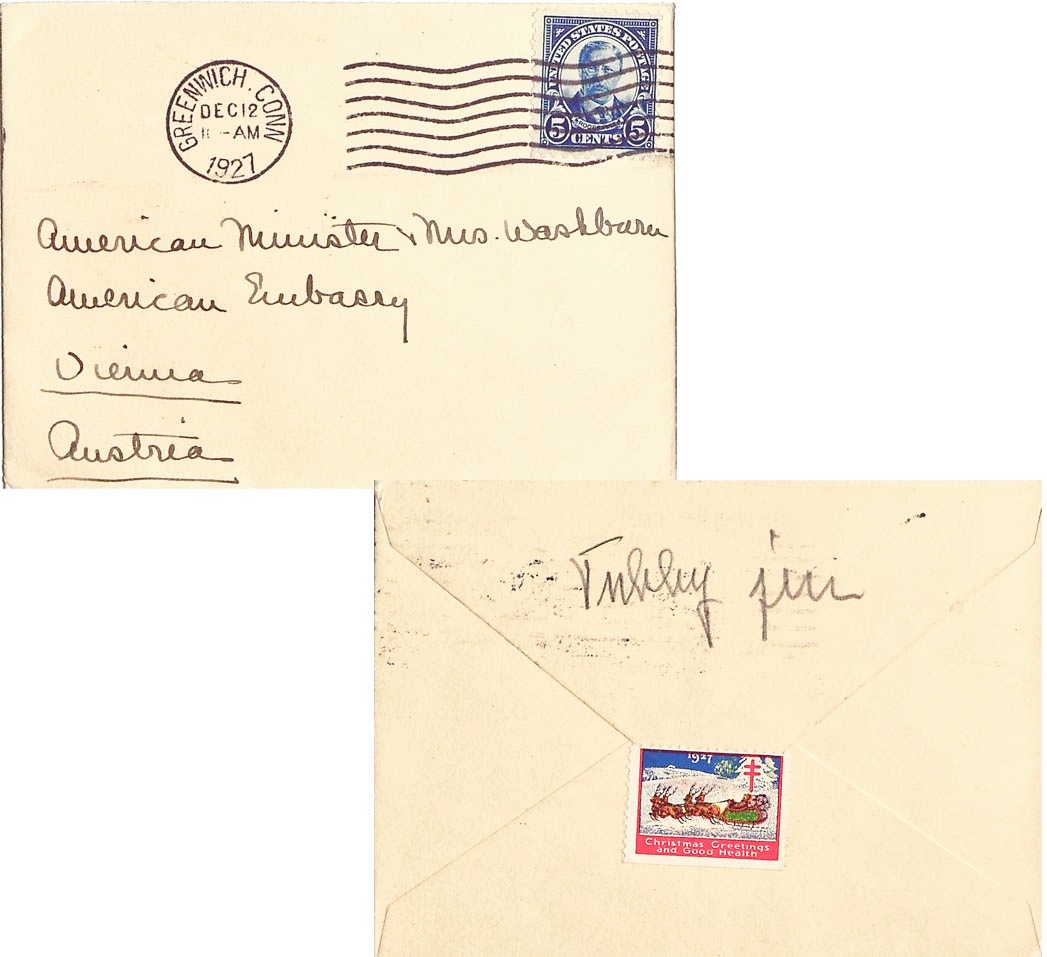 GREENWICH, CONN
DEC 12
-AM
1927
UNITED STATES POSTAGE
5 CENTS 5
American Minister & Mrs. Washburn
American Embassy
Vienna
Austria
1927
Christmas Greetings
and Good Health